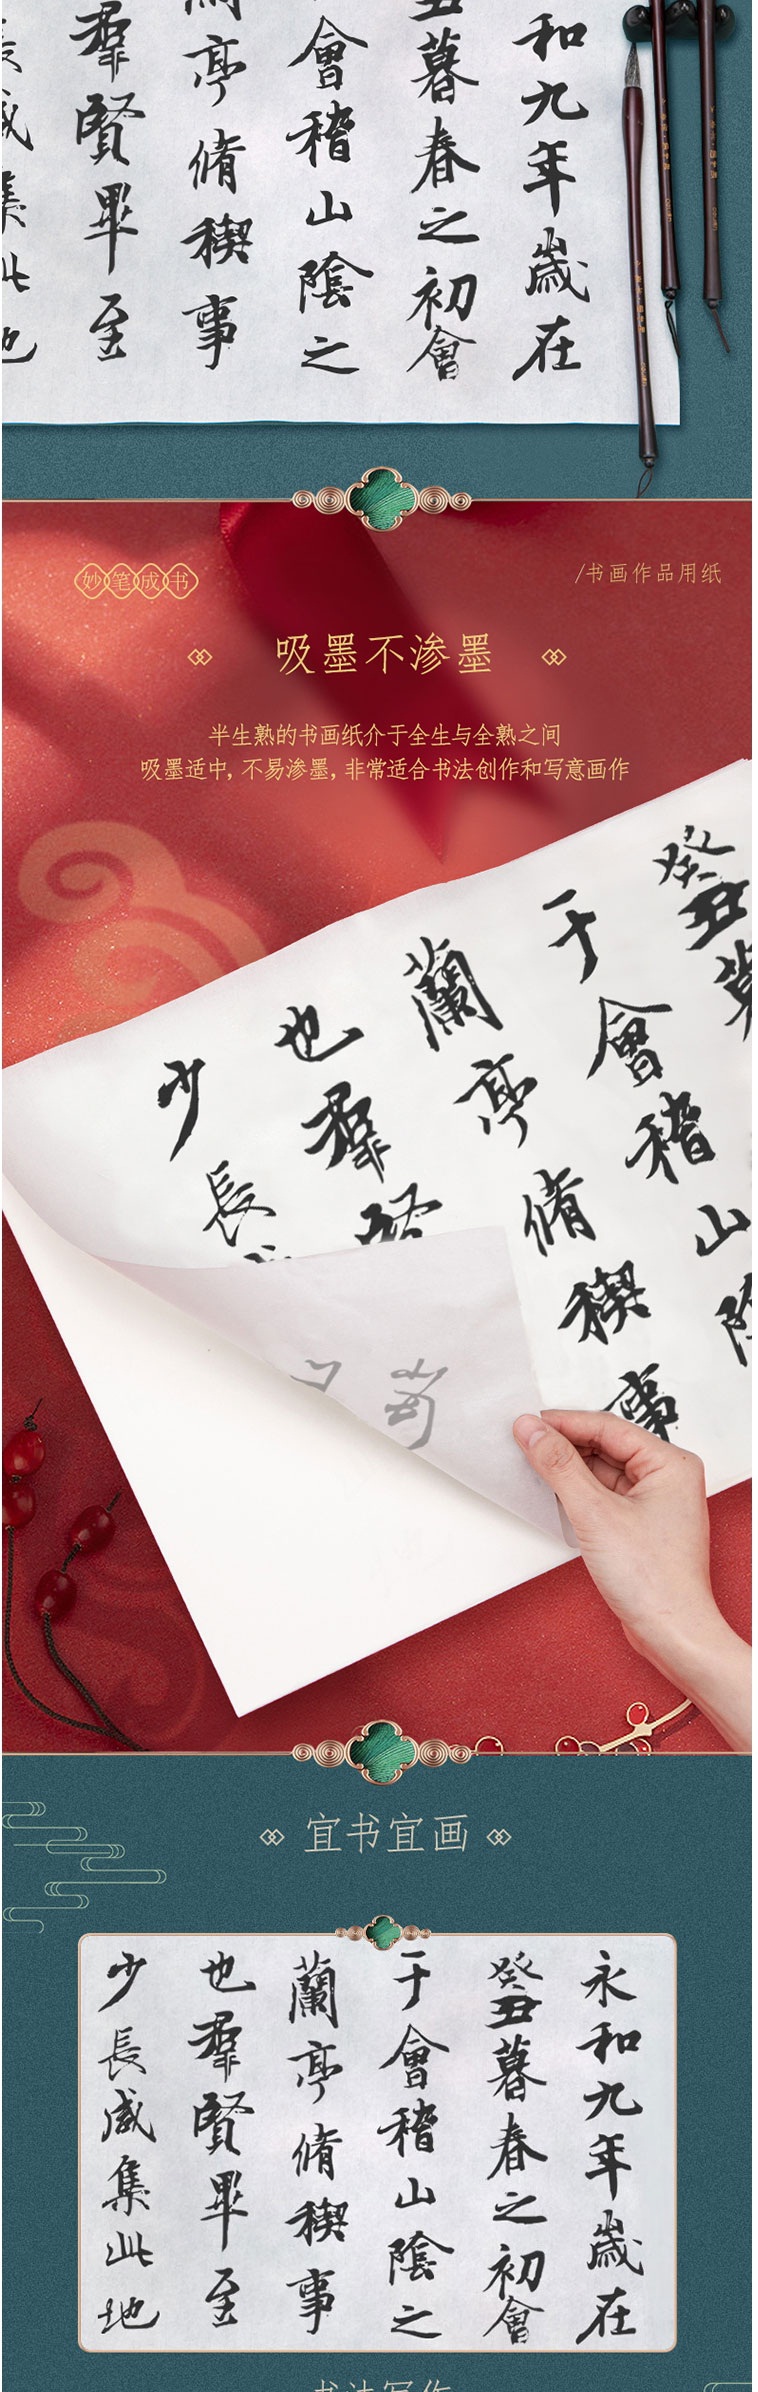 和九年歲在
丑暮春之初會
會稽山陰之
亭脩稧事
羣賢畢至
妙笔成书
/书画作品用纸
吸墨不渗墨
半生熟的书画纸介于全生与全熟之间
吸墨适中, 不易渗墨, 非常适合书法创作和写意画作
癸丑
于會稽山
蘭亭脩稧事
也羣
少長
宜书宜画
永和九年歲在
癸丑暮春之初會
于會稽山陰之
蘭亭脩稧事
也羣賢畢至
少長咸集此地